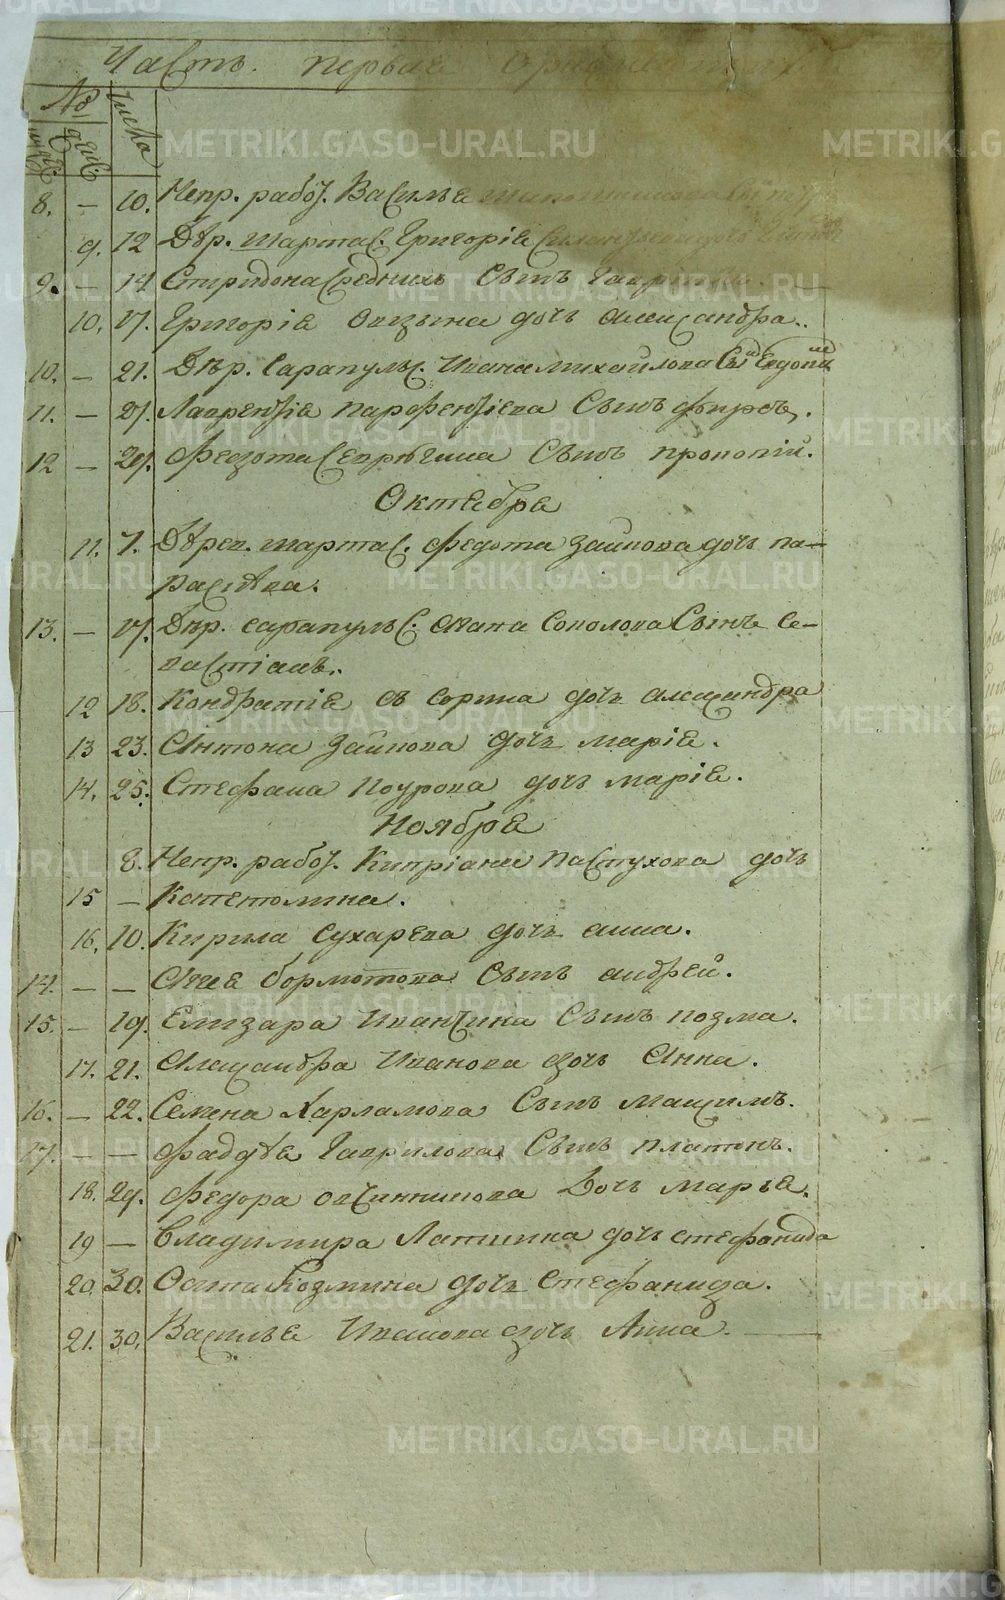 Часть первая о раждающихся
№ числа
муже: женс:
8. — 10. Непр. рабо. Василья
9. 12 Дѣр. Шартас. Григорiя
9. — 14 Спиридона Среднихъ Сынъ Гаврiилъ.
10. 17. Григорiя дочь Александра.
10. — 21. Дѣр. Сарапульс. Ивана Михайлова Сынъ
11. — 27. Лаврентiя Парфентiева Сынъ Фирсъ.
12 — 29. Феодота Сынъ Прокопiй.
Октября
11. 7. Дѣрев. Шартас. Федота Зайкова дочь Па-
раскѣва.
13. — 17. Дѣр. Сарапульс. Соколова Сынъ Се-
вастiанъ.
12 18. Кондратiя дочь Александра
13 23. Антона Зайкова дочь Марiя.
14. 25. Стефана дочь Марiя.
Ноября
8. Непр. рабо. Кипрiана Пастухова дочь
15 — Катерина.
16. 10. Кирила Сухарева дочь Анна.
14. — — Бормотова Сынъ Андрей.
15. — 19. Елизара Сынъ Козма.
17. 21. Александра Иванова дочь Анна.
16. — 22. Семена Харламова Сынъ Максимъ.
17. — — Фадѣя Гаврилова Сынъ Платонъ.
18. 29. Федора Овчинникова Дочь Марья.
19 — Владимира дочь Стефанида
20. 30. Осипа Козмина дочь Стефанида.
21. 30. Василья Иванова дочь Анна.
METRIKI.GASO-URAL.RU